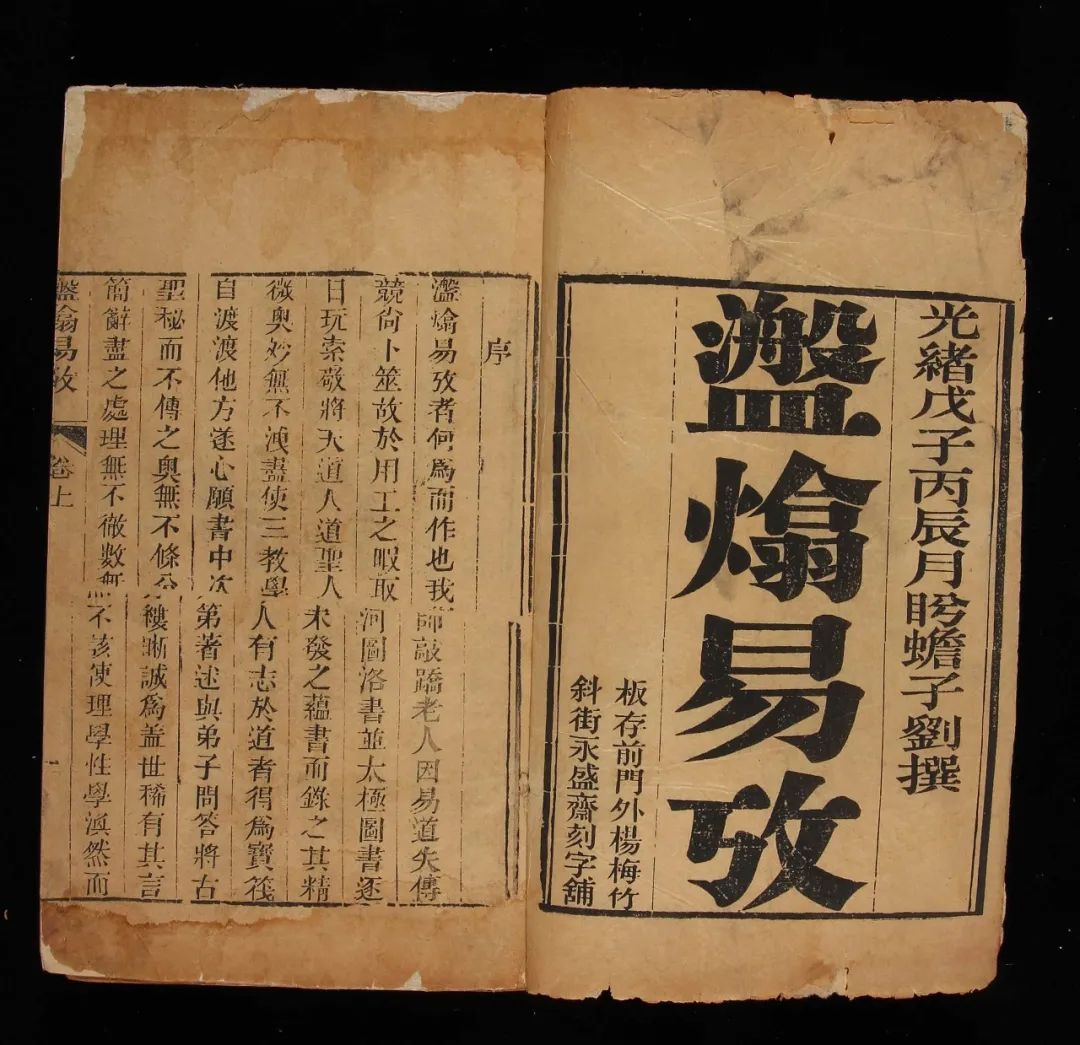 光緒戊子丙辰月盻蟾子劉撰
瀊熻易攷
板存前門外楊梅竹
斜街永盛齋刻字舖
序
瀊熻易攷者何爲而作也我師敲蹻老人因易道失傳
競尙卜筮故於用工之暇取河圖洛書並太極圖書逐
日玩索敬將天道人道聖人未發之蘊書而錄之其精
微奥妙無不洩盡使三教學人有志於道者得爲寶筏
自渡渡他方遂心願書中次第著述與弟子問答將古
聖秘而不傳之奥無不條分縷晰誠爲盖世稀有其言
簡辭盡之處理無不徹數無不該使理學性學然而
瀊熻易攷 卷上